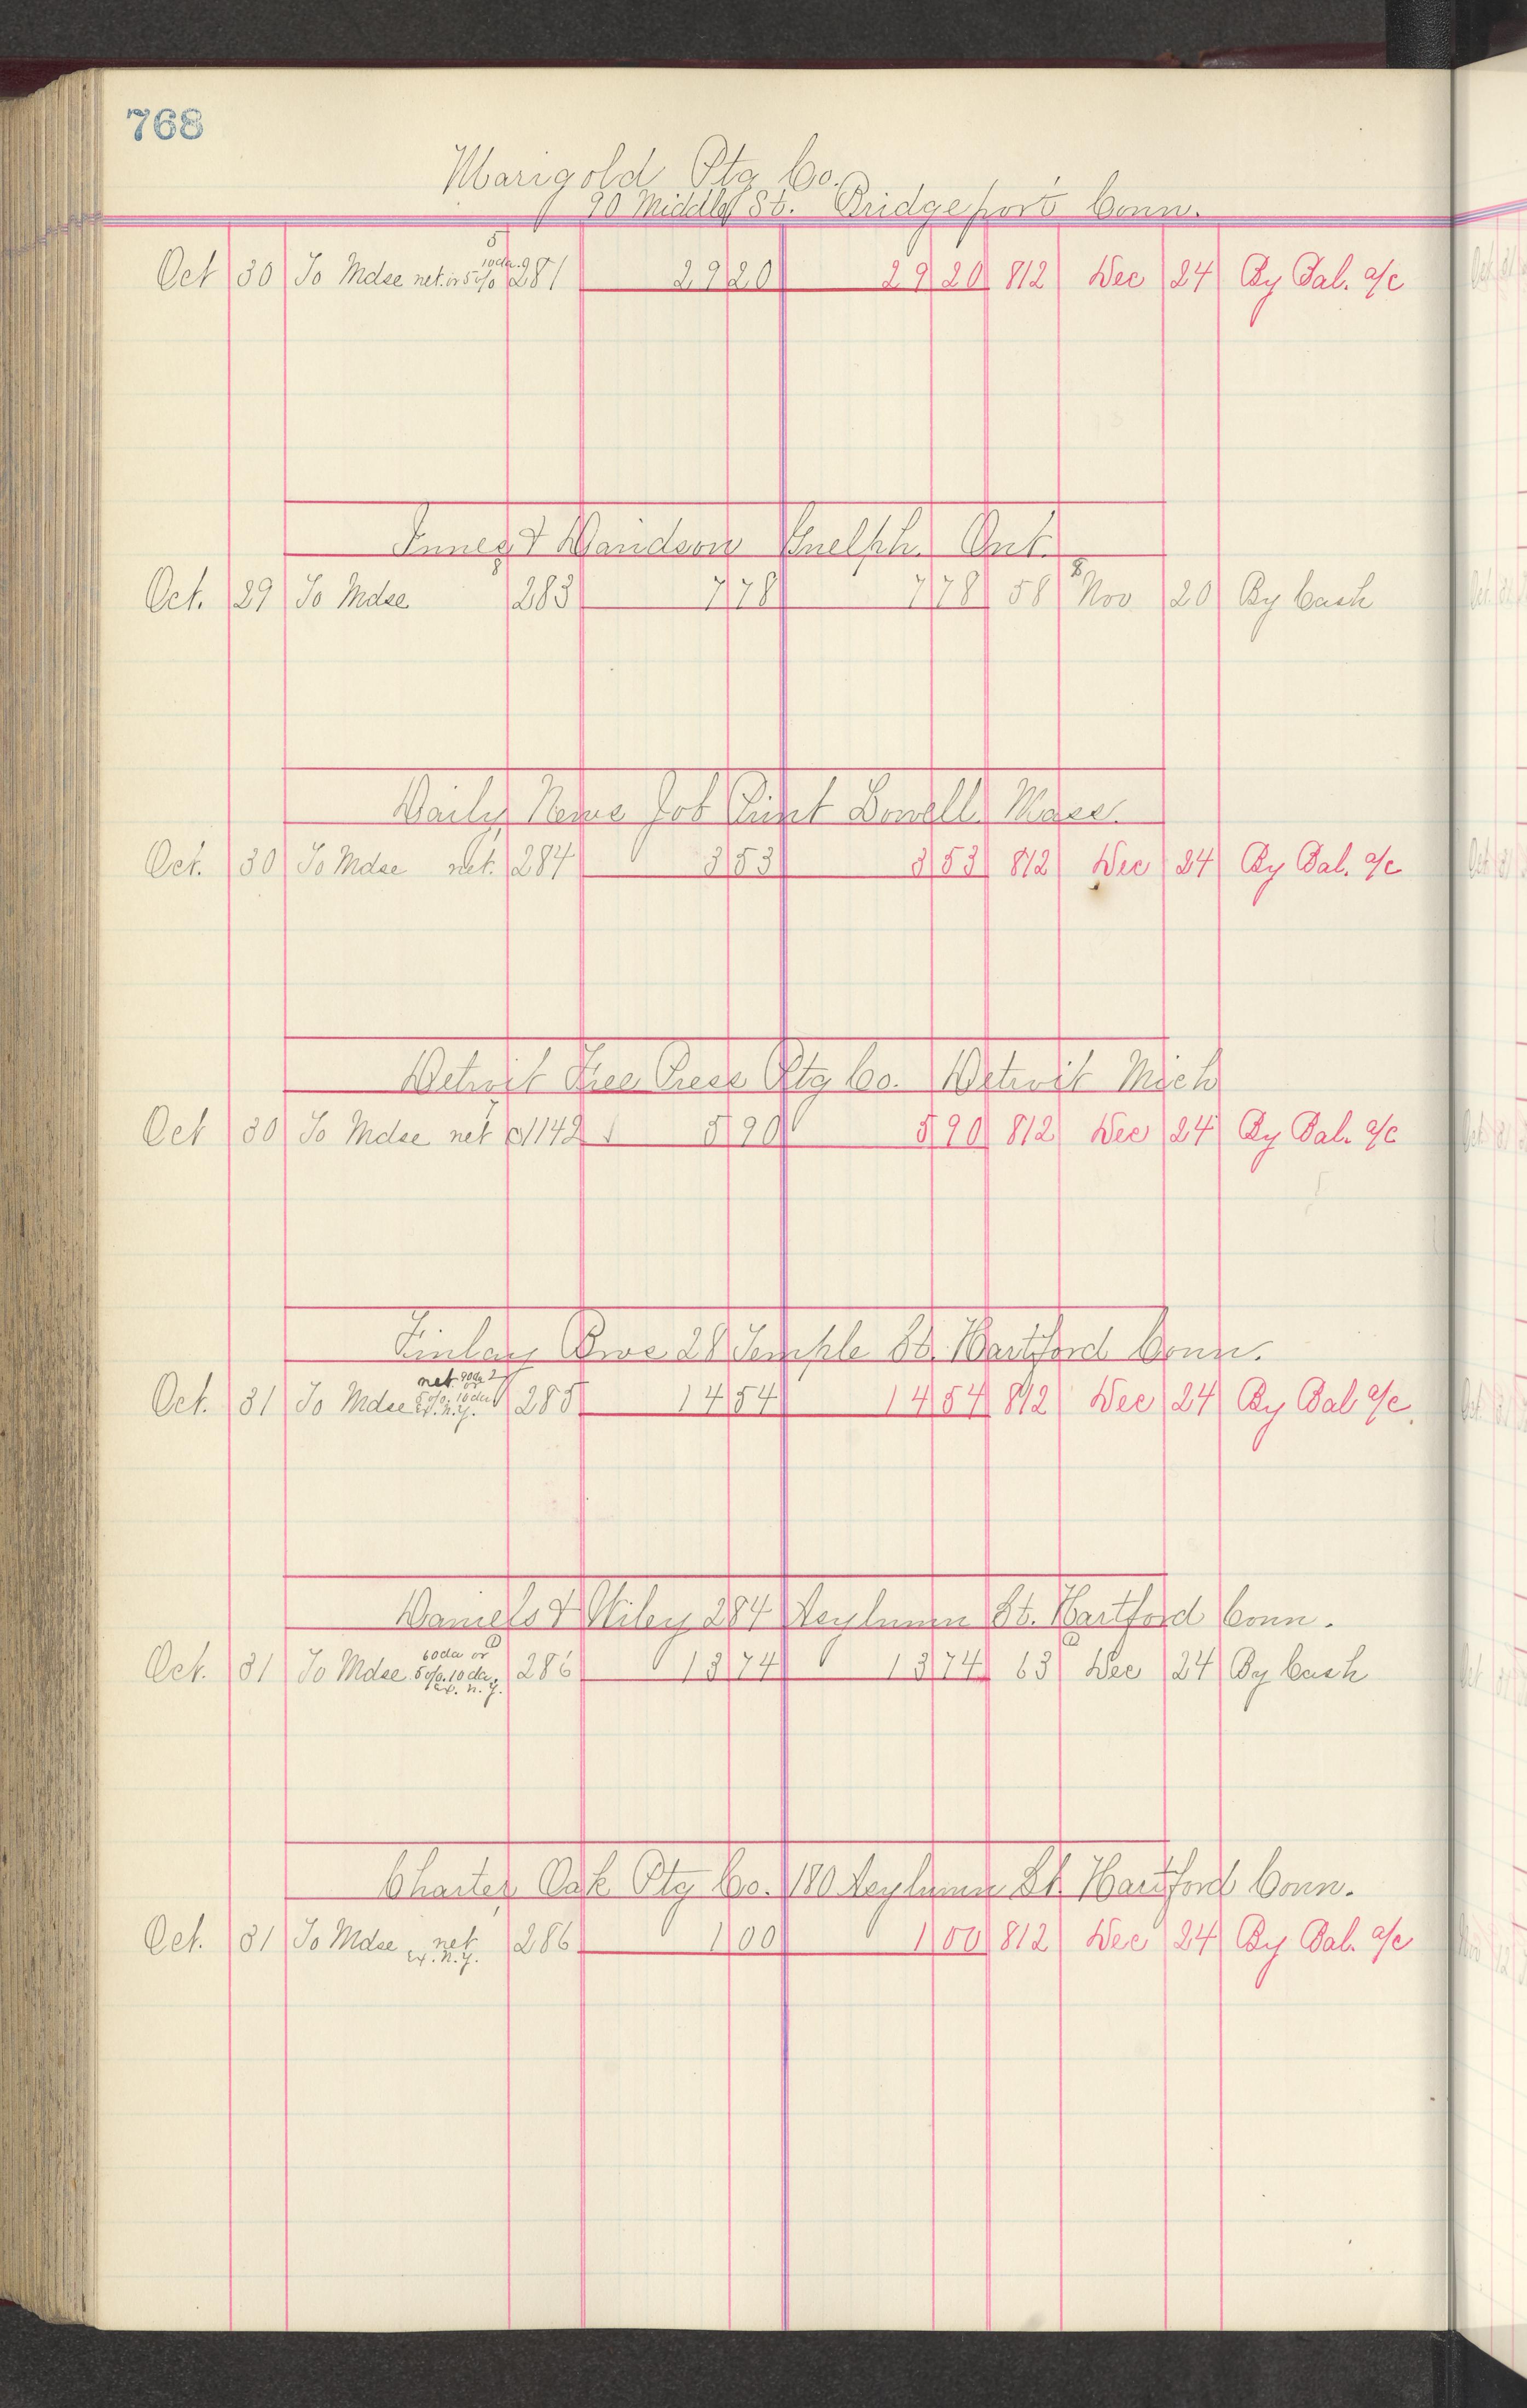 768
Marigold Ptg Co.
90 Middle St. Bridgeport Conn.
Oct 30 To Mdse net or 5% 10 da. 281 29 20 29 20 812 Dec 24 By Bal. a/c
Innes & Davidson Guelph. Ont.
Oct. 29 To Mdse 283 7 78 7 78 58 Nov 20 By Cash
Daily News Job Print Lowell Mass.
Oct. 30 To Mdse net. 284 3 53 3 53 812 Dec 24 By Bal. a/c
Detroit Free Press Ptg Co. Detroit Mich
Oct 30 To Mdse net 1142 5 90 5 90 812 Dec 24 By Bal. a/c
Finlay Bros 28 Temple St. Hartford Conn.
Oct. 31 To Mdse net 5% 10 da ex. N.Y. 285 14 54 14 54 812 Dec 24 By Bal a/c.
Daniels & Wiley 284 Asylumn St. Hartford Conn.
Oct. 31 To Mdse 60 da or 5% 10 da. ex. N.Y. 286 13 74 13 74 63 Dec 24 By Cash
Charter Oak Ptg Co. 180 Asylumn St. Hartford Conn.
Oct. 31 To Mdse net ex. N.Y. 286 1 00 1 00 812 Dec 24 By Bal. a/c